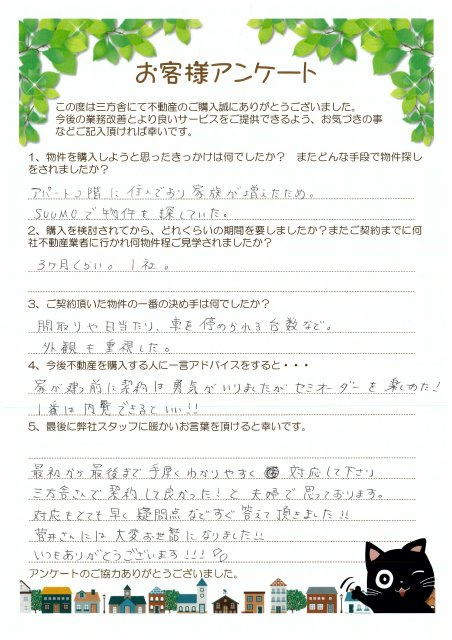 お客様アンケート
この度は三方舎にて不動産のご購入誠にありがとうございました。
今後の業務改善とより良いサービスをご提供できるよう、お気づきの事
などご記入頂ければ幸いです。
1、物件を購入しようと思ったきっかけは何でしたか？　またどんな手段で物件探し
をされましたか？
アパート2階に住んでおり家族が増えたため。
SUUMOで物件を探していた。
2、購入を検討されてから、どれくらいの期間を要しましたか？またご契約までに何
社不動産業者に行かれ何物件程ご見学されましたか？
3ヶ月くらい。1社。
3、ご契約頂いた物件の一番の決め手は何でしたか？
間取りや日当たり、車を停められる台数など。
外観も重視した。
4、今後不動産を購入する人に一言アドバイスをすると・・・
家が建つ前に契約は勇気がいりましたがセミオーダーを楽しめた！
1番は内覧できるといい!!
5、最後に弊社スタッフに暖かいお言葉を頂けると幸いです。
最初から最後まで手厚くわかりやすく 対応して下さり
三方舎さんで契約して良かった！と夫婦で思っております。
対応もとても早く疑問点などすぐ答えて頂きました!!
菅井さんには大変お世話になりました!!
いつもありがとうございます!!!
アンケートのご協力ありがとうございました。